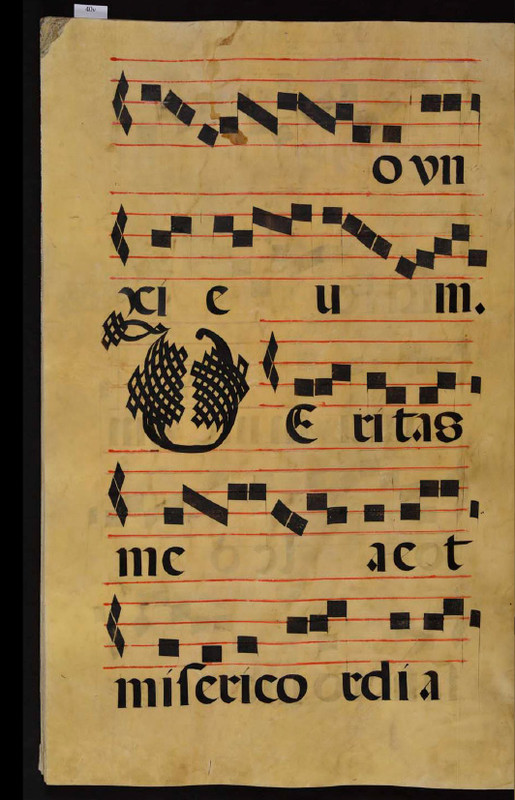 40v
o vn
xi e u m.
VE ritas
me a et
misericordia